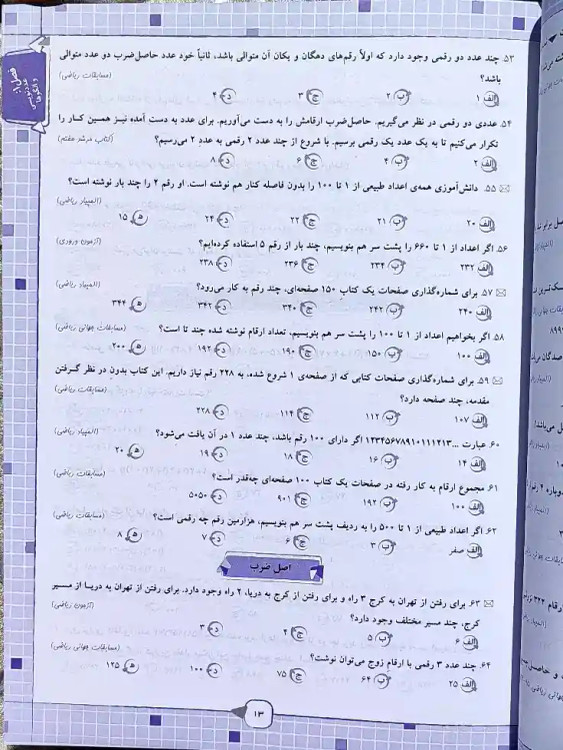 فصل ۱:
عددنویسی
و الگوها
۵۳. چند عدد دو رقمی وجود دارد که اولاً رقم‌های دهگان و یکان آن متوالی باشد، ثانیاً خود عدد حاصل‌ضرب دو عدد متوالی
باشد؟ (مسابقات ریاضی)
الف) ۱ ب) ۲ ج) ۳ د) ۴
۵۴. عددی دو رقمی در نظر می‌گیریم. حاصل‌ضرب ارقامش را به دست می‌آوریم. برای عدد به دست آمده نیز همین کار را
تکرار می‌کنیم تا به یک عدد یک رقمی برسیم. با شروع از چند عدد ۲ رقمی به عدد ۲ می‌رسیم؟ (کتاب مرشد هفتم)
الف) ۲ ب) ۴ ج) ۶ د) ۸
۵۵. دانش‌آموزی همه‌ی اعداد طبیعی از ۱ تا ۱۰۰ را بدون فاصله کنار هم نوشته است. او رقم ۲ را چند بار نوشته است؟
(المپیاد ریاضی)
الف) ۲۰ ب) ۲۱ ج) ۲۲ د) ۲۴ ه) ۱۵
۵۶. اگر اعداد از ۱ تا ۶۶۰ را پشت سر هم بنویسیم، چند بار از رقم ۵ استفاده کرده‌ایم؟ (آزمون ورودی)
الف) ۲۳۲ ب) ۲۳۴ ج) ۲۳۶ د) ۲۳۸
۵۷. برای شماره‌گذاری صفحات یک کتاب ۱۵۰ صفحه‌ای، چند رقم به کار می‌رود؟ (المپیاد ریاضی)
الف) ۲۴۰ ب) ۲۴۲ ج) ۳۴۰ د) ۳۴۲ ه) ۳۴۴
۵۸. اگر بخواهیم اعداد از ۱ تا ۱۰۰ را پشت سر هم بنویسیم، تعداد ارقام نوشته شده چند تا است؟ (مسابقات جهانی ریاضی)
الف) ۱۰۰ ب) ۱۵۰ ج) ۱۹۰ د) ۱۹۲ ه) ۲۰۰
۵۹. برای شماره‌گذاری صفحات کتابی که از صفحه‌ی ۱ شروع شده، به ۲۲۸ رقم نیاز داریم. این کتاب بدون در نظر گرفتن
مقدمه، چند صفحه دارد؟ (مسابقات ریاضی)
الف) ۱۰۷ ب) ۱۱۲ ج) ۱۱۴ د) ۲۲۸
۶۰. عبارت ...۱۲۳۴۵۶۷۸۹۱۰۱۱۱۲۱۳ اگر دارای ۱۰۰ رقم باشد، چند عدد ۱ در آن یافت می‌شود؟ (المپیاد ریاضی)
الف) ۱۴ ب) ۱۶ ج) ۱۸ د) ۱۹ ه) ۲۰
۶۱. مجموع ارقام به کار رفته در صفحات یک کتاب ۱۰۰ صفحه‌ای چه‌قدر است؟ (مسابقات ریاضی)
الف) ۱۰۰ ب) ۱۹۲ ج) ۹۰۱ د) ۵۰۵۰
۶۲. اگر اعداد طبیعی از ۱ تا ۵۰۰ را به ردیف پشت سر هم بنویسیم، هزارمین رقم چه رقمی است؟ (مسابقات ریاضی)
الف) صفر ب) ۳ ج) ۶ د) ۷ ه) ۸
اصل ضرب
۶۳. برای رفتن از تهران به کرج ۳ راه و برای رفتن از کرج به دریا، ۲ راه وجود دارد. برای رفتن از تهران به دریا از مسیر
کرج، چند مسیر مختلف وجود دارد؟ (آزمون ریاضی)
الف) ۶ ب) ۵ ج) ۴ د) ۳
۶۴. چند عدد ۳ رقمی با ارقام زوج می‌توان نوشت؟ (مسابقات جهانی ریاضی)
الف) ۲۵ ب) ۶۴ ج) ۷۵ د) ۱۰۰ ه) ۱۲۵
۱۳